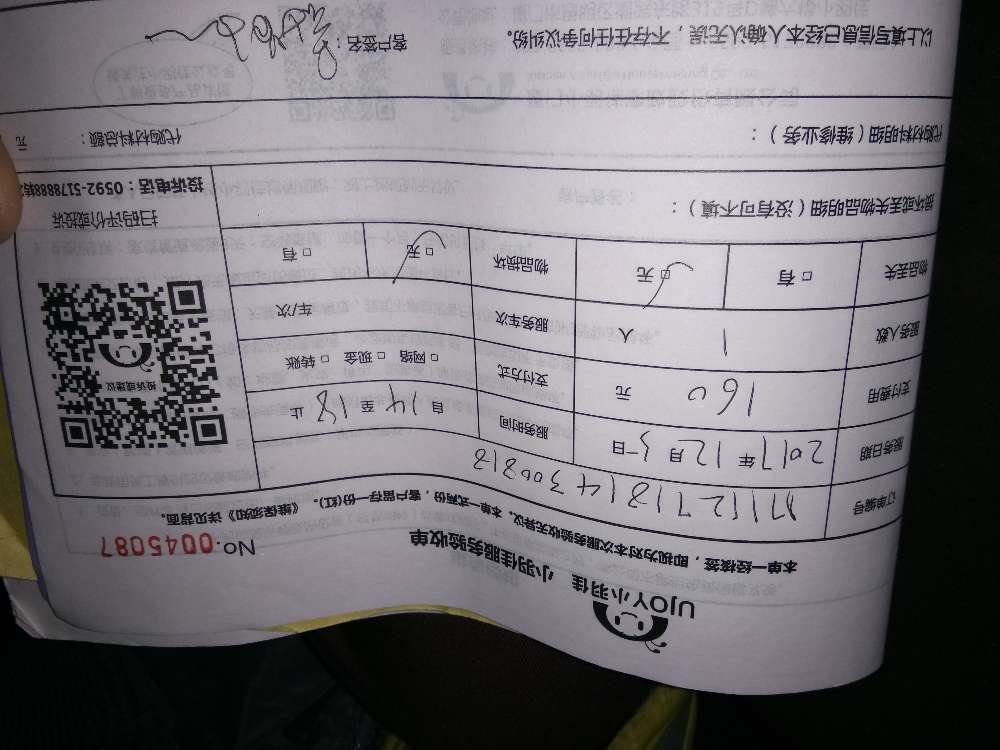 UJOY小羽佳 小羽佳服务验收单
No. 0045087
本单一经核签，即视为对本次服务验收无异议。本单一式两份，客户留存一份(红)。《维保须知》详见背面。
订单编号
服务日期 2017年12月5日 服务时间 自14至18止
支付费用 160 元 支付方式 □网络 □现金 □转账
服务人数 1 人 服务车次 车/次
物品丢失 □有 □无 物品损坏 □无 □有
投诉或建议
扫码评价或投诉
投诉电话：0592-5178888转2
损坏或丢失物品明细（没有可不填）：
代购材料明细（维修业务）： 代购材料总额： 元
以上填写信息已经本人确认无误，不存在任何争议纠纷。 客户签名：